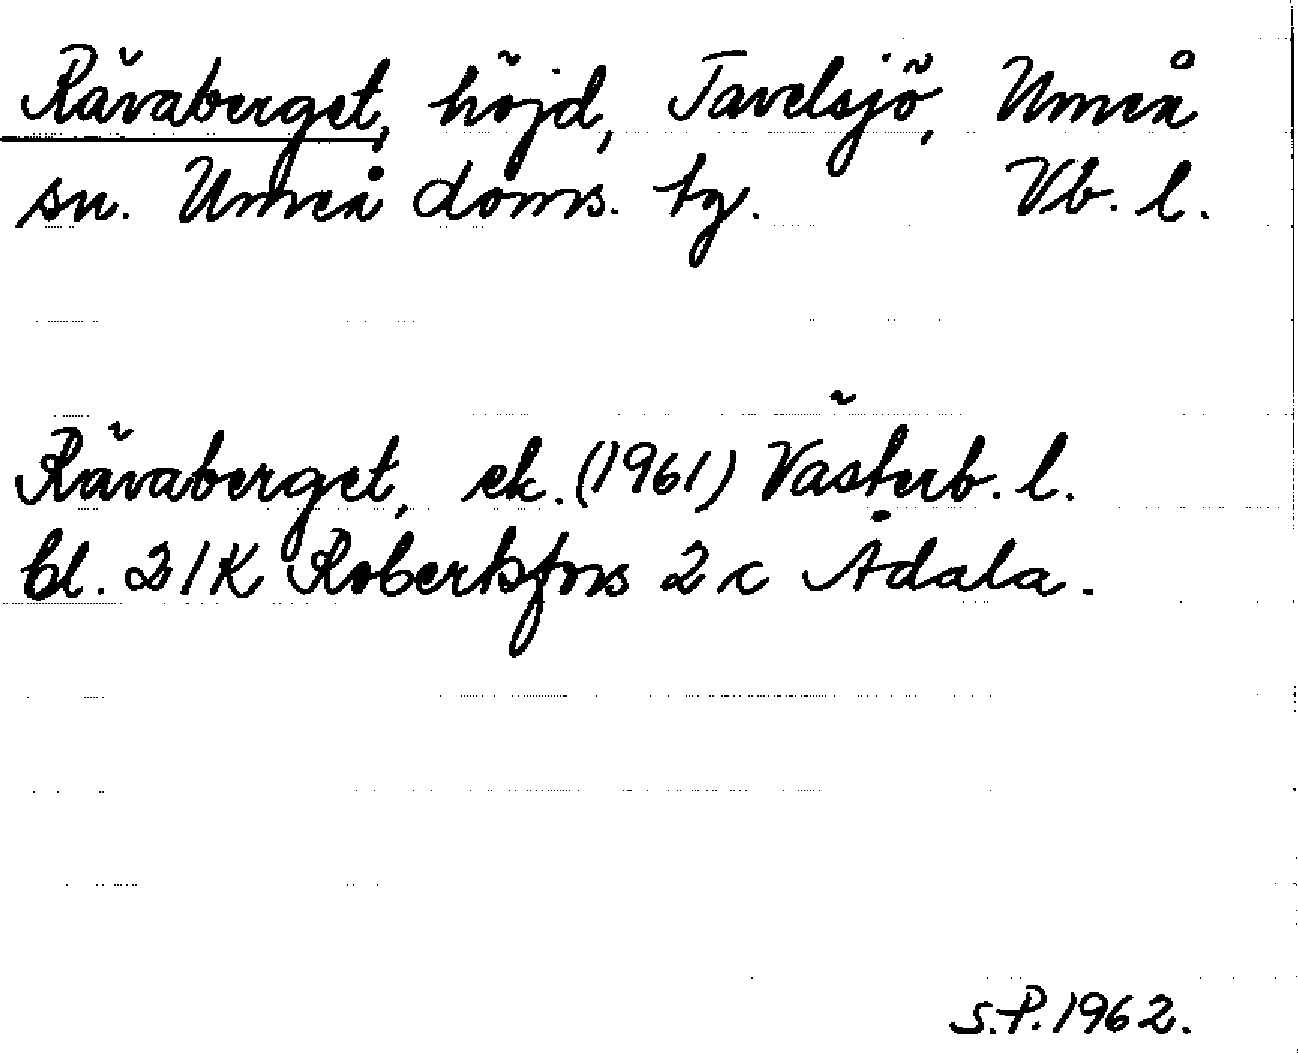 Rävaberget, höjd, Tavelsjö, Umeå
sn. Umeå doms. tg. Vb. l.
Rävaberget, ek. (1961) Västerb. l.
bl. 21K Robertsfors 2c Ådala.
S.P. 1962.